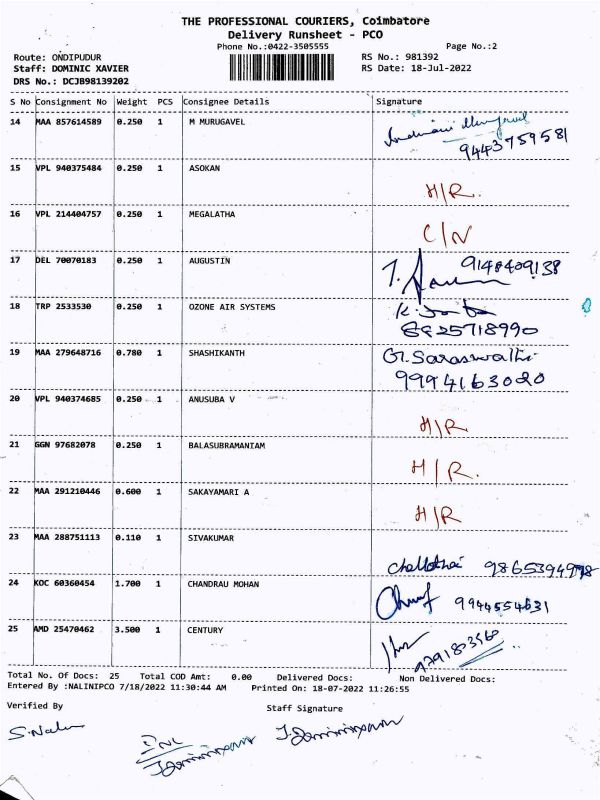 THE PROFESSIONAL COURIERS, Coimbatore
Delivery Runsheet - PCO
Phone No.:0422-3505555 Page No.:2
Route: ONDIPUDUR RS No.: 981392
Staff: DOMINIC XAVIER RS Date: 18-Jul-2022
DRS No.: DCJB98139202
S No Consignment No Weight PCS Consignee Details Signature
14 MAA 857614589 0.250 1 M MURUGAVEL
9443759581
15 VPL 940375484 0.250 1 ASOKAN H/R.
16 VPL 214404757 0.250 1 MEGALATHA C/N
17 DEL 70070183 0.250 1 AUGUSTIN 9148409138
18 TRP 2533530 0.250 1 OZONE AIR SYSTEMS
8925718990
19 MAA 279648716 0.780 1 SHASHIKANTH G. Saraswathi
9994163020
20 VPL 940374685 0.250 1 ANUSUBA V H/R
21 GGN 97682078 0.250 1 BALASUBRAMANIAM H/R.
22 MAA 291210446 0.600 1 SAKAYAMARI A H/R
23 MAA 288751113 0.110 1 SIVAKUMAR
24 KOC 60360454 1.700 1 CHANDRAU MOHAN 9944554631
25 AMD 25470462 3.500 1 CENTURY
Total No. Of Docs: 25 Total COD Amt: 0.00 Delivered Docs: Non Delivered Docs:
Entered By :NALINIPCO 7/18/2022 11:30:44 AM Printed On: 18-07-2022 11:26:55
Verified By Staff Signature